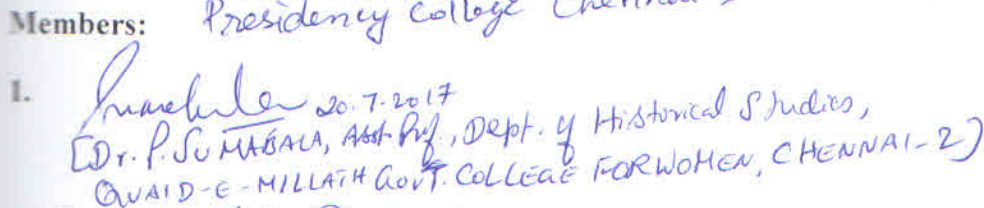 Members: Presidency College Chennai
1. 20.7.2017
[Dr. P. SUMABALA, Asst. Prof., Dept. of Historical Studies,
QUAID-E-MILLATH GOVT. COLLEGE FOR WOMEN, CHENNAI-2]